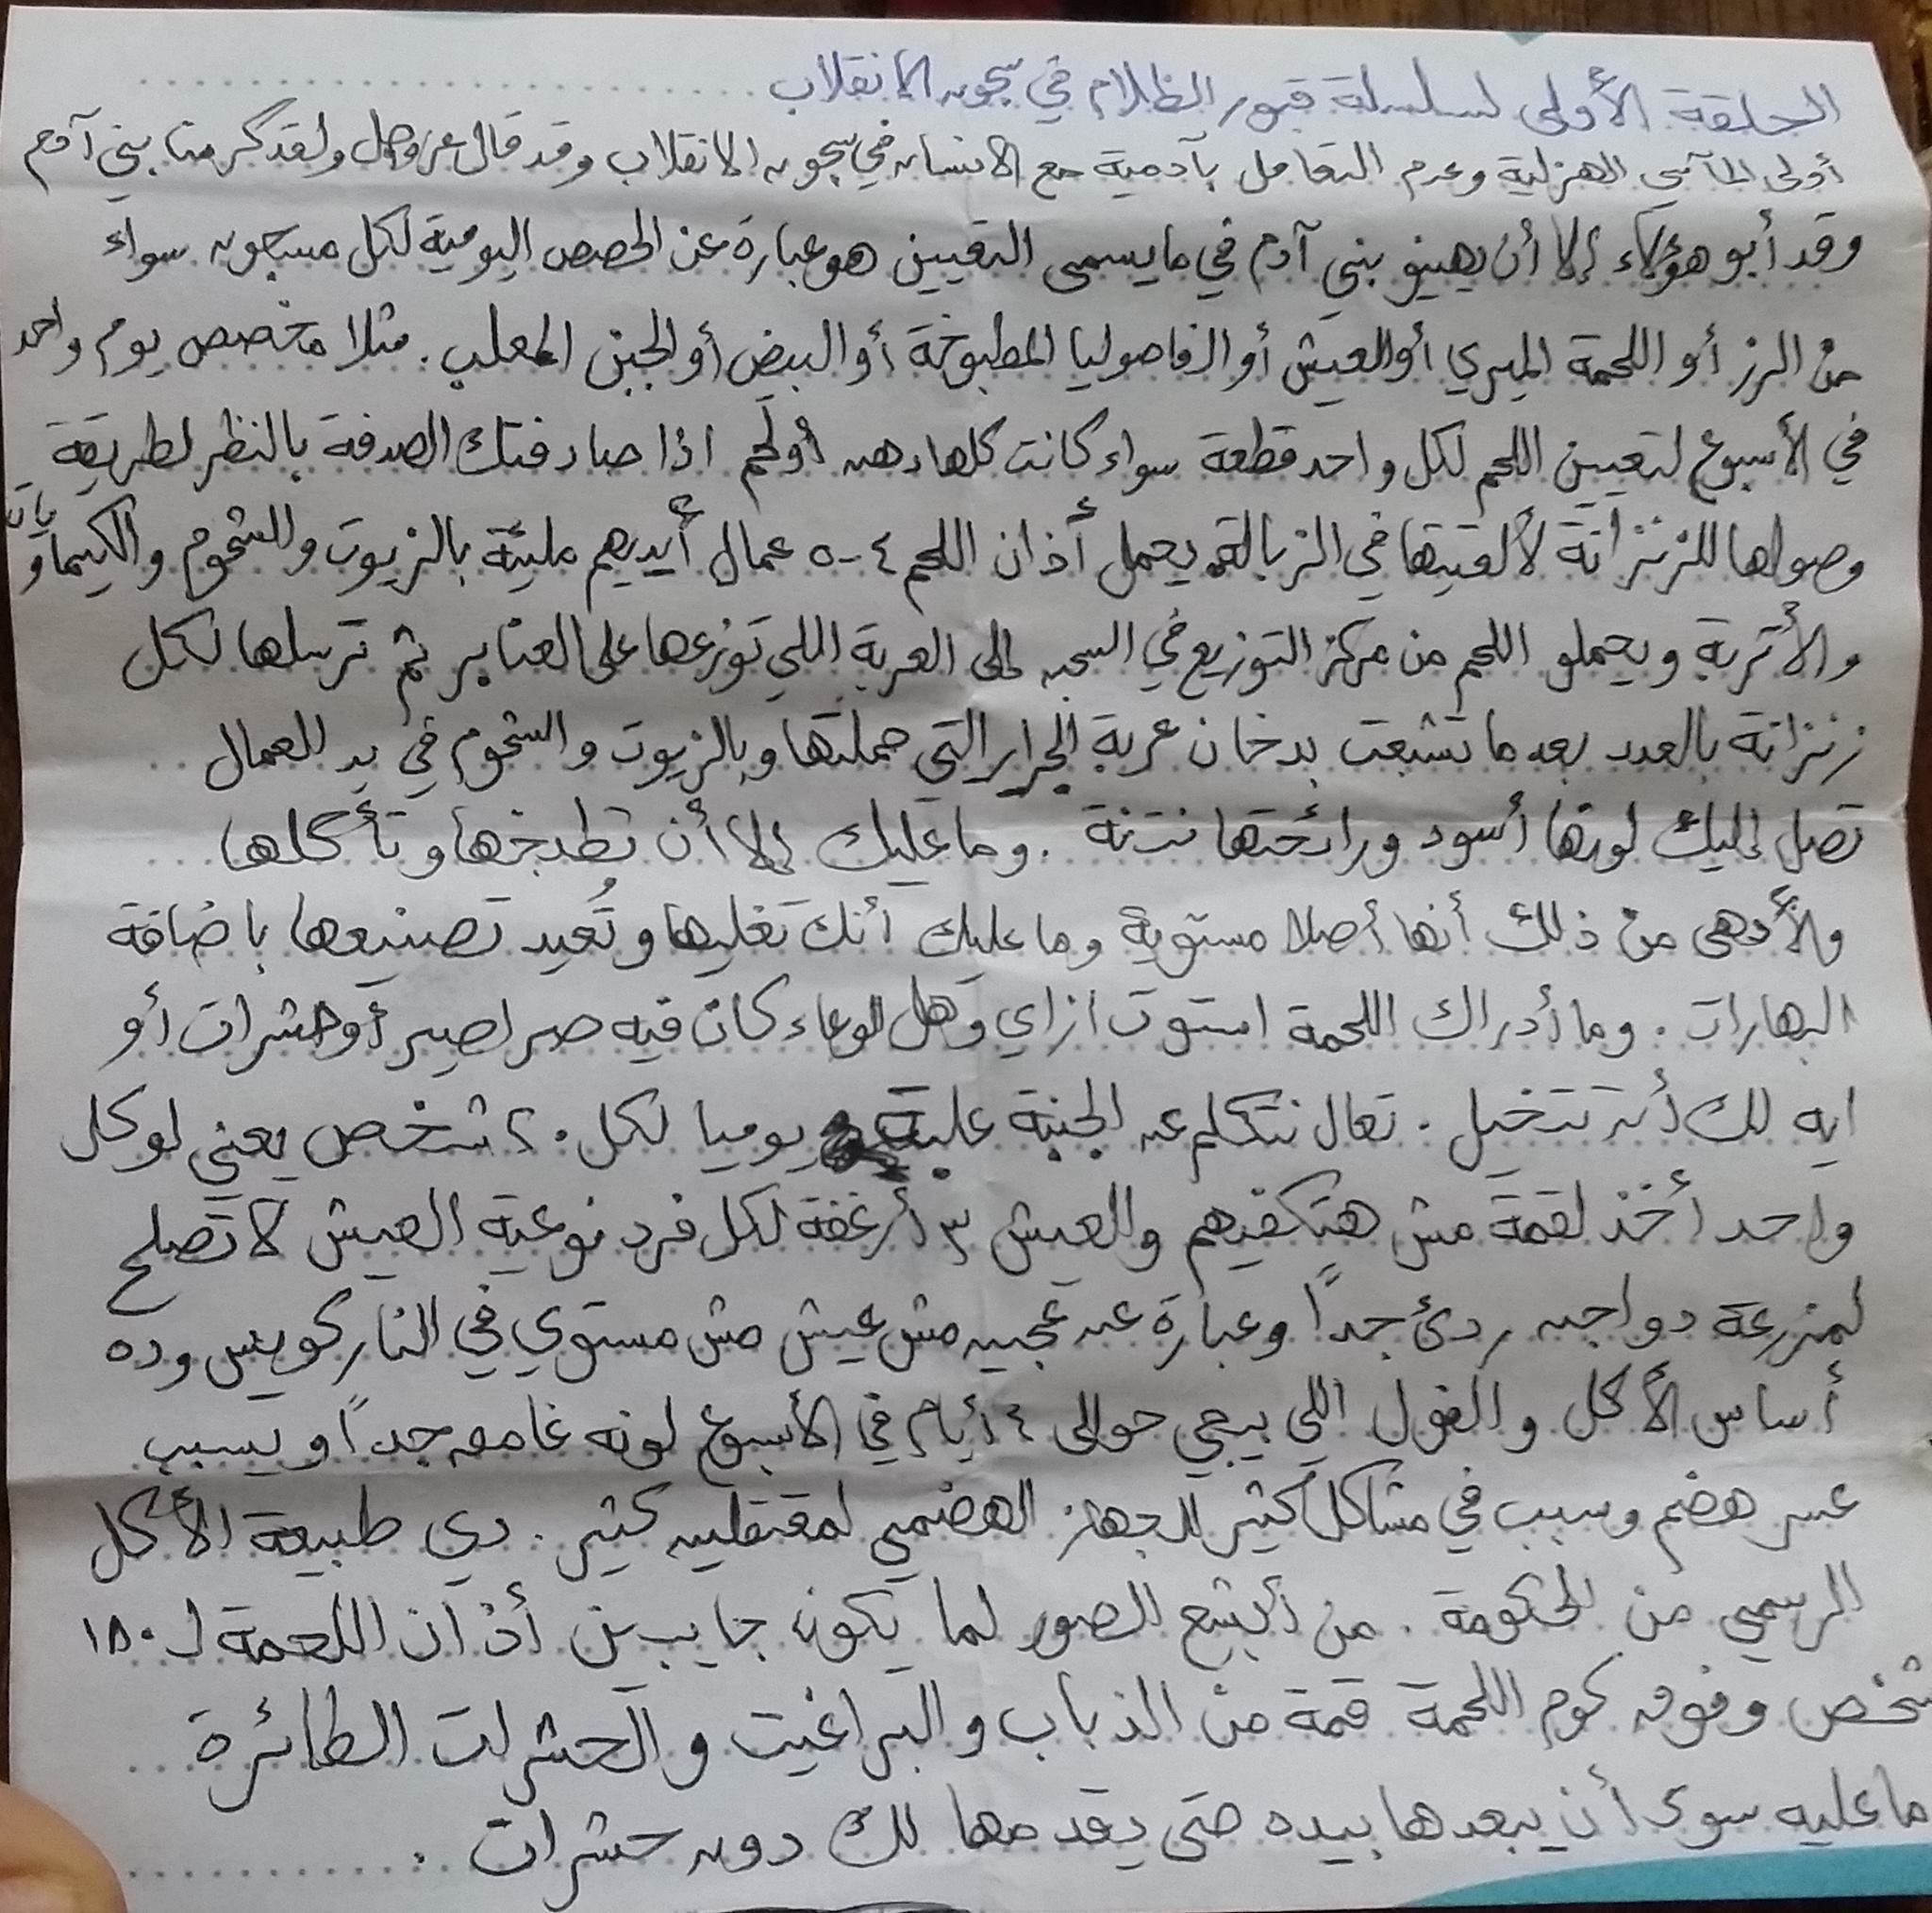 الحلقة الأولى لسلسلة قبور الظلام في سجون الانقلاب
أولى المآسي الهزلية وعدم التعامل بآدمية مع الانسان في سجون الانقلاب وقد قال عز وجل ولقد كرمنا بني آدم
وقد أبو هؤلاء إلا أن يهينو بني آدم في ما يسمى التعيين هو عبارة عن الحصص اليومية لكل مسجون سواء
من الرز أو اللحمة الميري أو العيش أو الفاصوليا المطبوخة أو البيض أو الجبن المعلب. مثلا مخصص يوم واحد
في الأسبوع لتعيين اللحم لكل واحد قطعة سواء كانت كلها دهن أو لحم اذا صادفتك الصدفة بالنظر لطريقة
وصولها للزنزانة لألقيتها في الزبالة يحمل أذان اللحم ٤-٥ عمال أيديهم مليئة بالزيوت والشحوم والكيماويات
والأتربة ويحملو اللحم من مركز التوزيع في السجن إلى العربة اللي توزعها على العنابر ثم ترسلها لكل
زنزانة بالعدد بعد ما تشبعت بدخان عربة الجرار التي حملتها وبالزيوت والشحوم في يد العمال
تصل إليك لونها أسود ورائحتها نتنة. وما عليك إلا أن تطبخها وتأكلها
والأدهى من ذلك أنها أصلا مستوية وما عليك أنك تغليها وتُعيد تصنيعها باضافة
البهارات. وما أدراك اللحمة استوت ازاي وهل الوعاء كان فيه صراصير أو حشرات أو
ايه لك أن تتخيل. تعال نتكلم عن الجبنة علبة يوميا لكل ٢٠ شخص يعني لو كل
واحد أخذ لقمة مش هتكفيهم والعيش ٣ أرغفة لكل فرد نوعية العيش لا تصلح
لمزرعة دواجن ردئ جداً وعبارة عن عجين مش عيش مش مستوي في النار كويس وده
أساس الأكل والفول اللي بيجي حوالى ٤ أيام في الأسبوع لونه غامق جداً ويسبب
عسر هضم وسبب في مشاكل كثير للجهاز الهضمي لمعتقلين كثير. دي طبيعة الأكل
الرسمي من الحكومة. من أبشع الصور لما يكون جايب من أذان اللحمة لـ ١٨٠
شخص وفوق كوم اللحمة قمة من الذباب والبراغيت والحشرات الطائرة
ما عليه سوى أن يبعدها بيده حتى يقدمها لك دون حشرات.